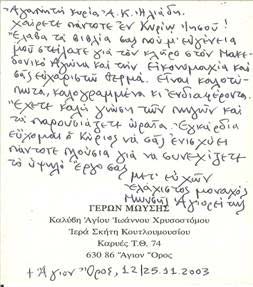 Ἀγαπητὴ κυρία Α. Κ. Ἠλιάδη,
Χαίρετε πάντοτε ἐν Κυρίῳ Ἰησοῦ!
Ἔλαβα τὰ βιβλία σας ποὺ μ' εὐγένεια
μοῦ στείλατε γιὰ τὸν κλῆρο στὸν Μακε-
δονικὸ Ἀγώνα καὶ τὴν Εἰκονομαχία καὶ
σᾶς εὐχαριστῶ θερμά. Εἶναι καλοτύ-
πωτα, καλογραμμένα κι ἐνδιαφέροντα.
Ἔχετε καλὴ γνώση τῶν πηγῶν καὶ
τὰ παρουσιάζετε ὡραῖα. Ἐγκάρδια
εὔχομαι ὁ Κύριος νὰ σᾶς ἐνισχύει
πάντοτε πλούσια γιὰ νὰ συνεχίζετε
τὸ ὑψηλὸ ἔργο σας.
Μετ' εὐχῶν
ἐλάχιστος μοναχὸς
Μωυσῆς Ἁγιορείτης
ΓΕΡΩΝ ΜΩΥΣΗΣ
Καλύβη Ἁγίου Ἰωάννου Χρυσοστόμου
Ἱερὰ Σκήτη Κουτλουμουσίου
Καρυές Τ.Θ. 74
630 86 Ἅγιον Ὄρος
+ Ἅγιον Ὄρος, 12/25.11.2003